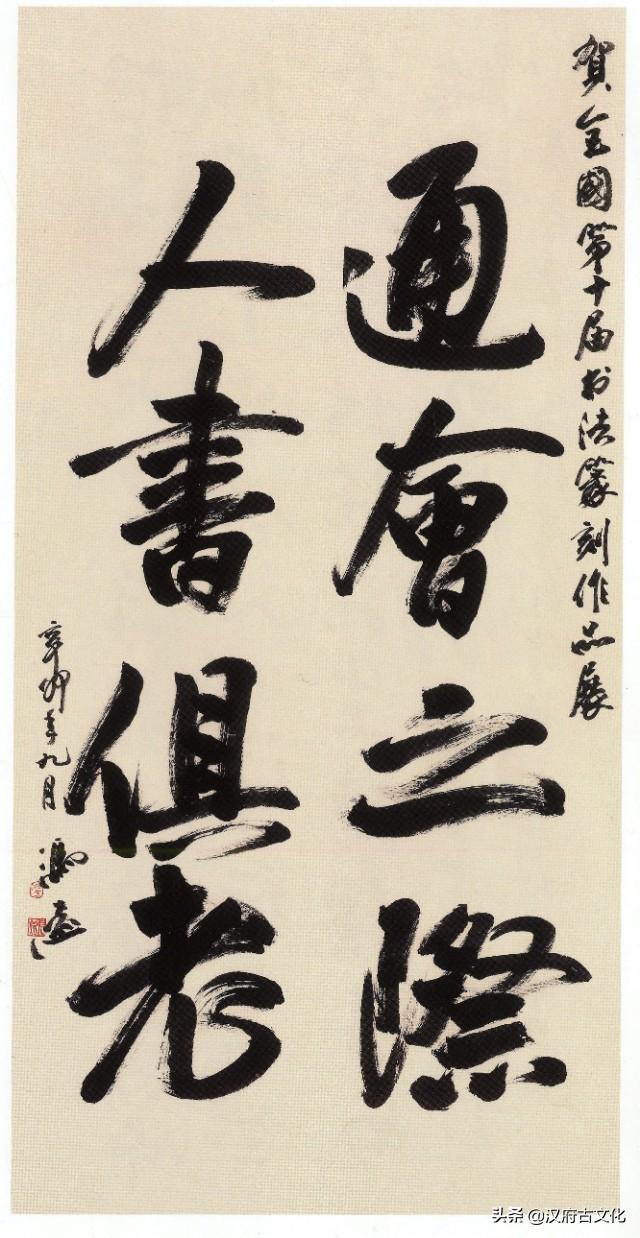 賀全國第十届书法篆刻作品展
通會之際
人書俱老
辛卯年九月 馮遠
头条 @汉府古文化